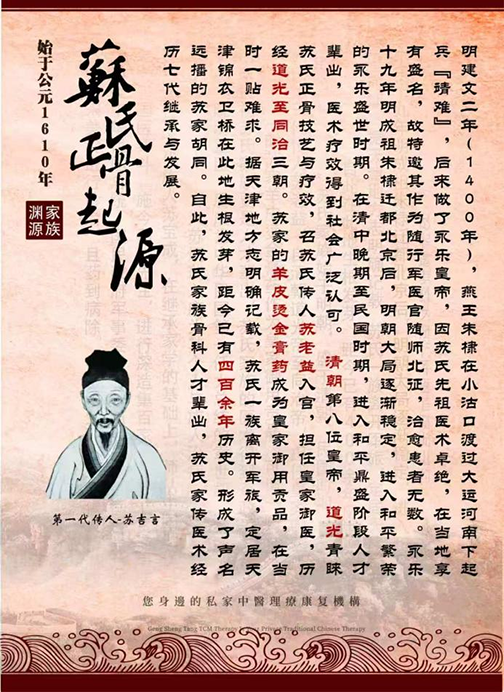 明建文二年(1400年)，燕王朱棣在小沽口渡过大运河南下起
兵『靖难』，后来做了永乐皇帝，因苏氏先祖医术卓绝，在当地享
有盛名，故特邀其作为随行军医官随师北征，治愈患者无数。永乐
十九年明成祖朱棣迁都北京后，明朝大局逐渐稳定，进入和平繁荣
的永乐盛世时期。在清中晚期至民国时期，进入和平鼎盛阶段人才
辈出，医术疗效得到社会广泛认可。清朝第八位皇帝，道光青睐
苏氏正骨技艺与疗效，召苏氏传人苏老益入宫，担任皇家御医，历
经道光至同治三朝。苏家的羊皮烫金膏药成为皇家御用贡品，在当
时一贴难求。据天津地方志明确记载，苏氏一族离开军旅，定居天
津锦衣卫桥在此地生根发芽，距今已有四百余年历史。形成了声名
远播的苏家胡同。自此，苏氏家族骨科人才辈出，苏氏家传医术经
历七代继承与发展。
蘇氏正骨起源
家族渊源
始于公元1610年
第一代传人-苏吉言
您身邊的私家中醫理療康复機構
TCM Therapy Private Traditional Chinese Therapy